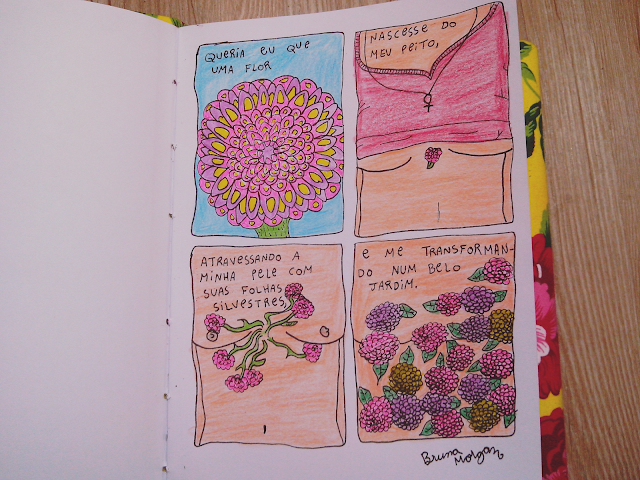 QUERIA EU QUE
UMA FLOR
NASCESSE DO
MEU PEITO,
ATRAVESSANDO A
MINHA PELE COM
SUAS FOLHAS
SILVESTRES,
E ME TRANSFORMAN-
DO NUM BELO
JARDIM.
Bruna
Morgan